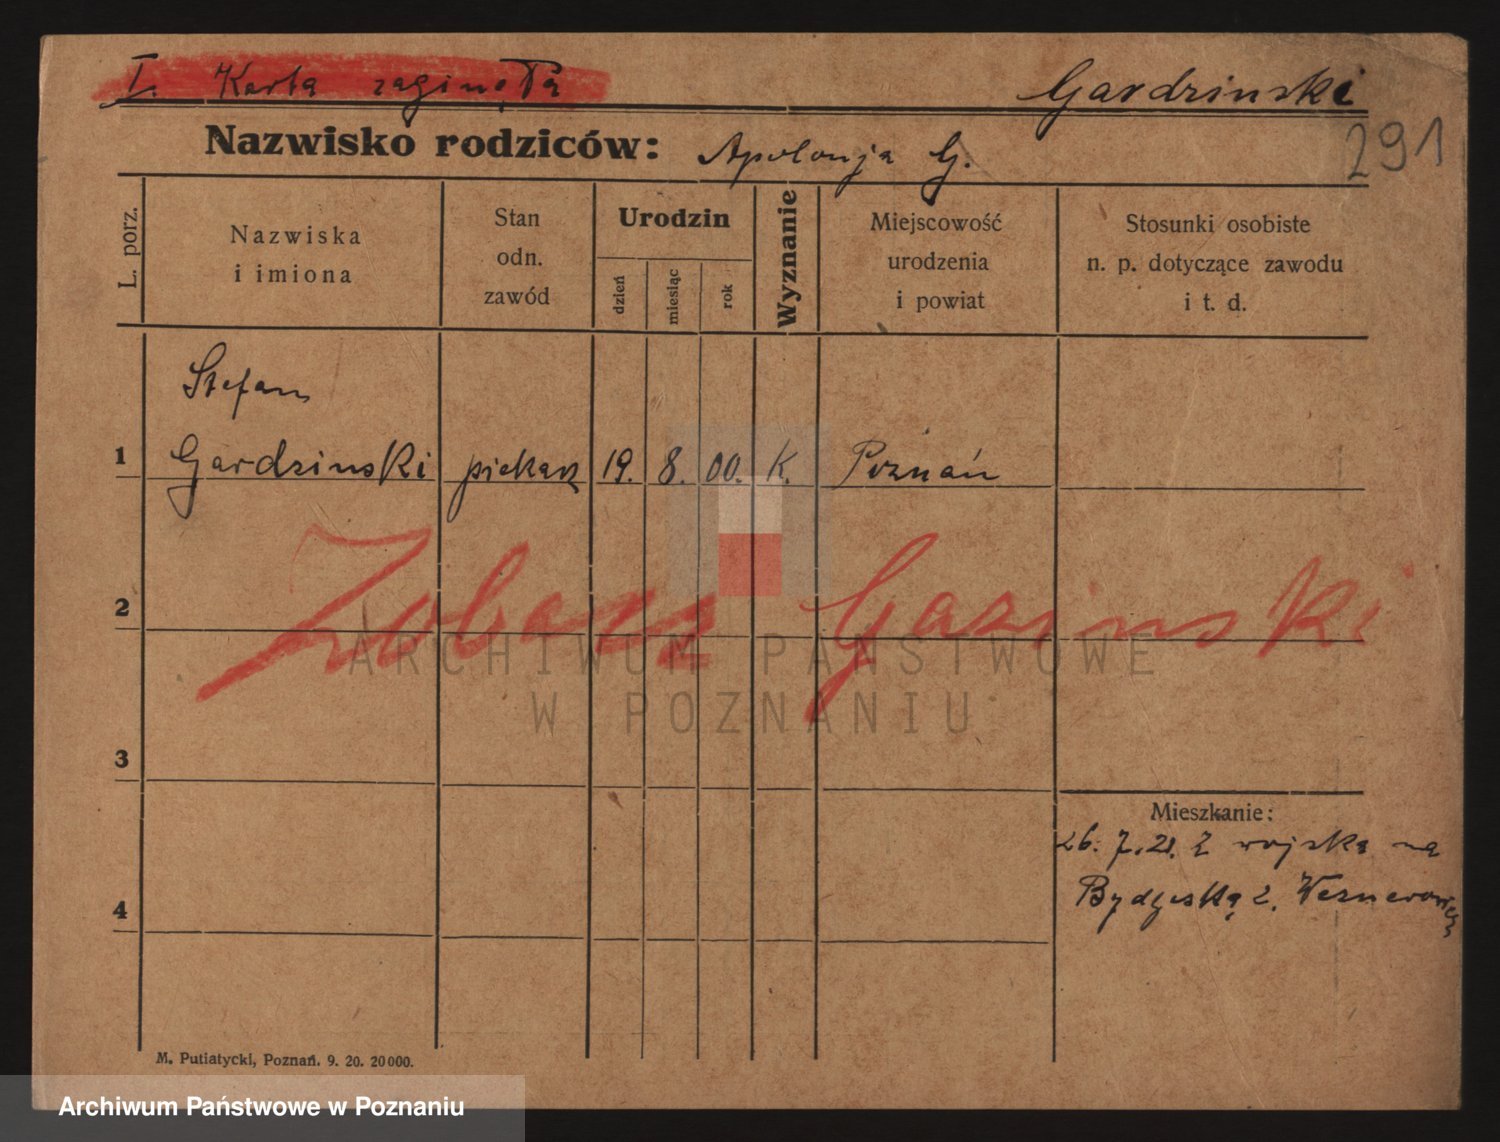 I. Karta zaginęła
Gardzinski
291
Nazwisko rodziców: Apolonja G.
L. porz.
Nazwiska
i imiona
Stan
odn.
zawód
Urodzin
dzień
miesiąc
rok
Wyznanie
Miejscowość
urodzenia
i powiat
Stosunki osobiste
n. p. dotyczące zawodu
i t. d.
Stefan
1 Gardzinski piekarz 19. 8. 00. K. Poznań
Zobacz Gasinski
2
ARCHIWUM PAŃSTWOWE
W POZNANIU
3
Mieszkanie:
26. 7. 21. Z wojska na
Bydgoską 2.
4
M. Putiatycki, Poznań. 9. 20. 20000.
Archiwum Państwowe w Poznaniu